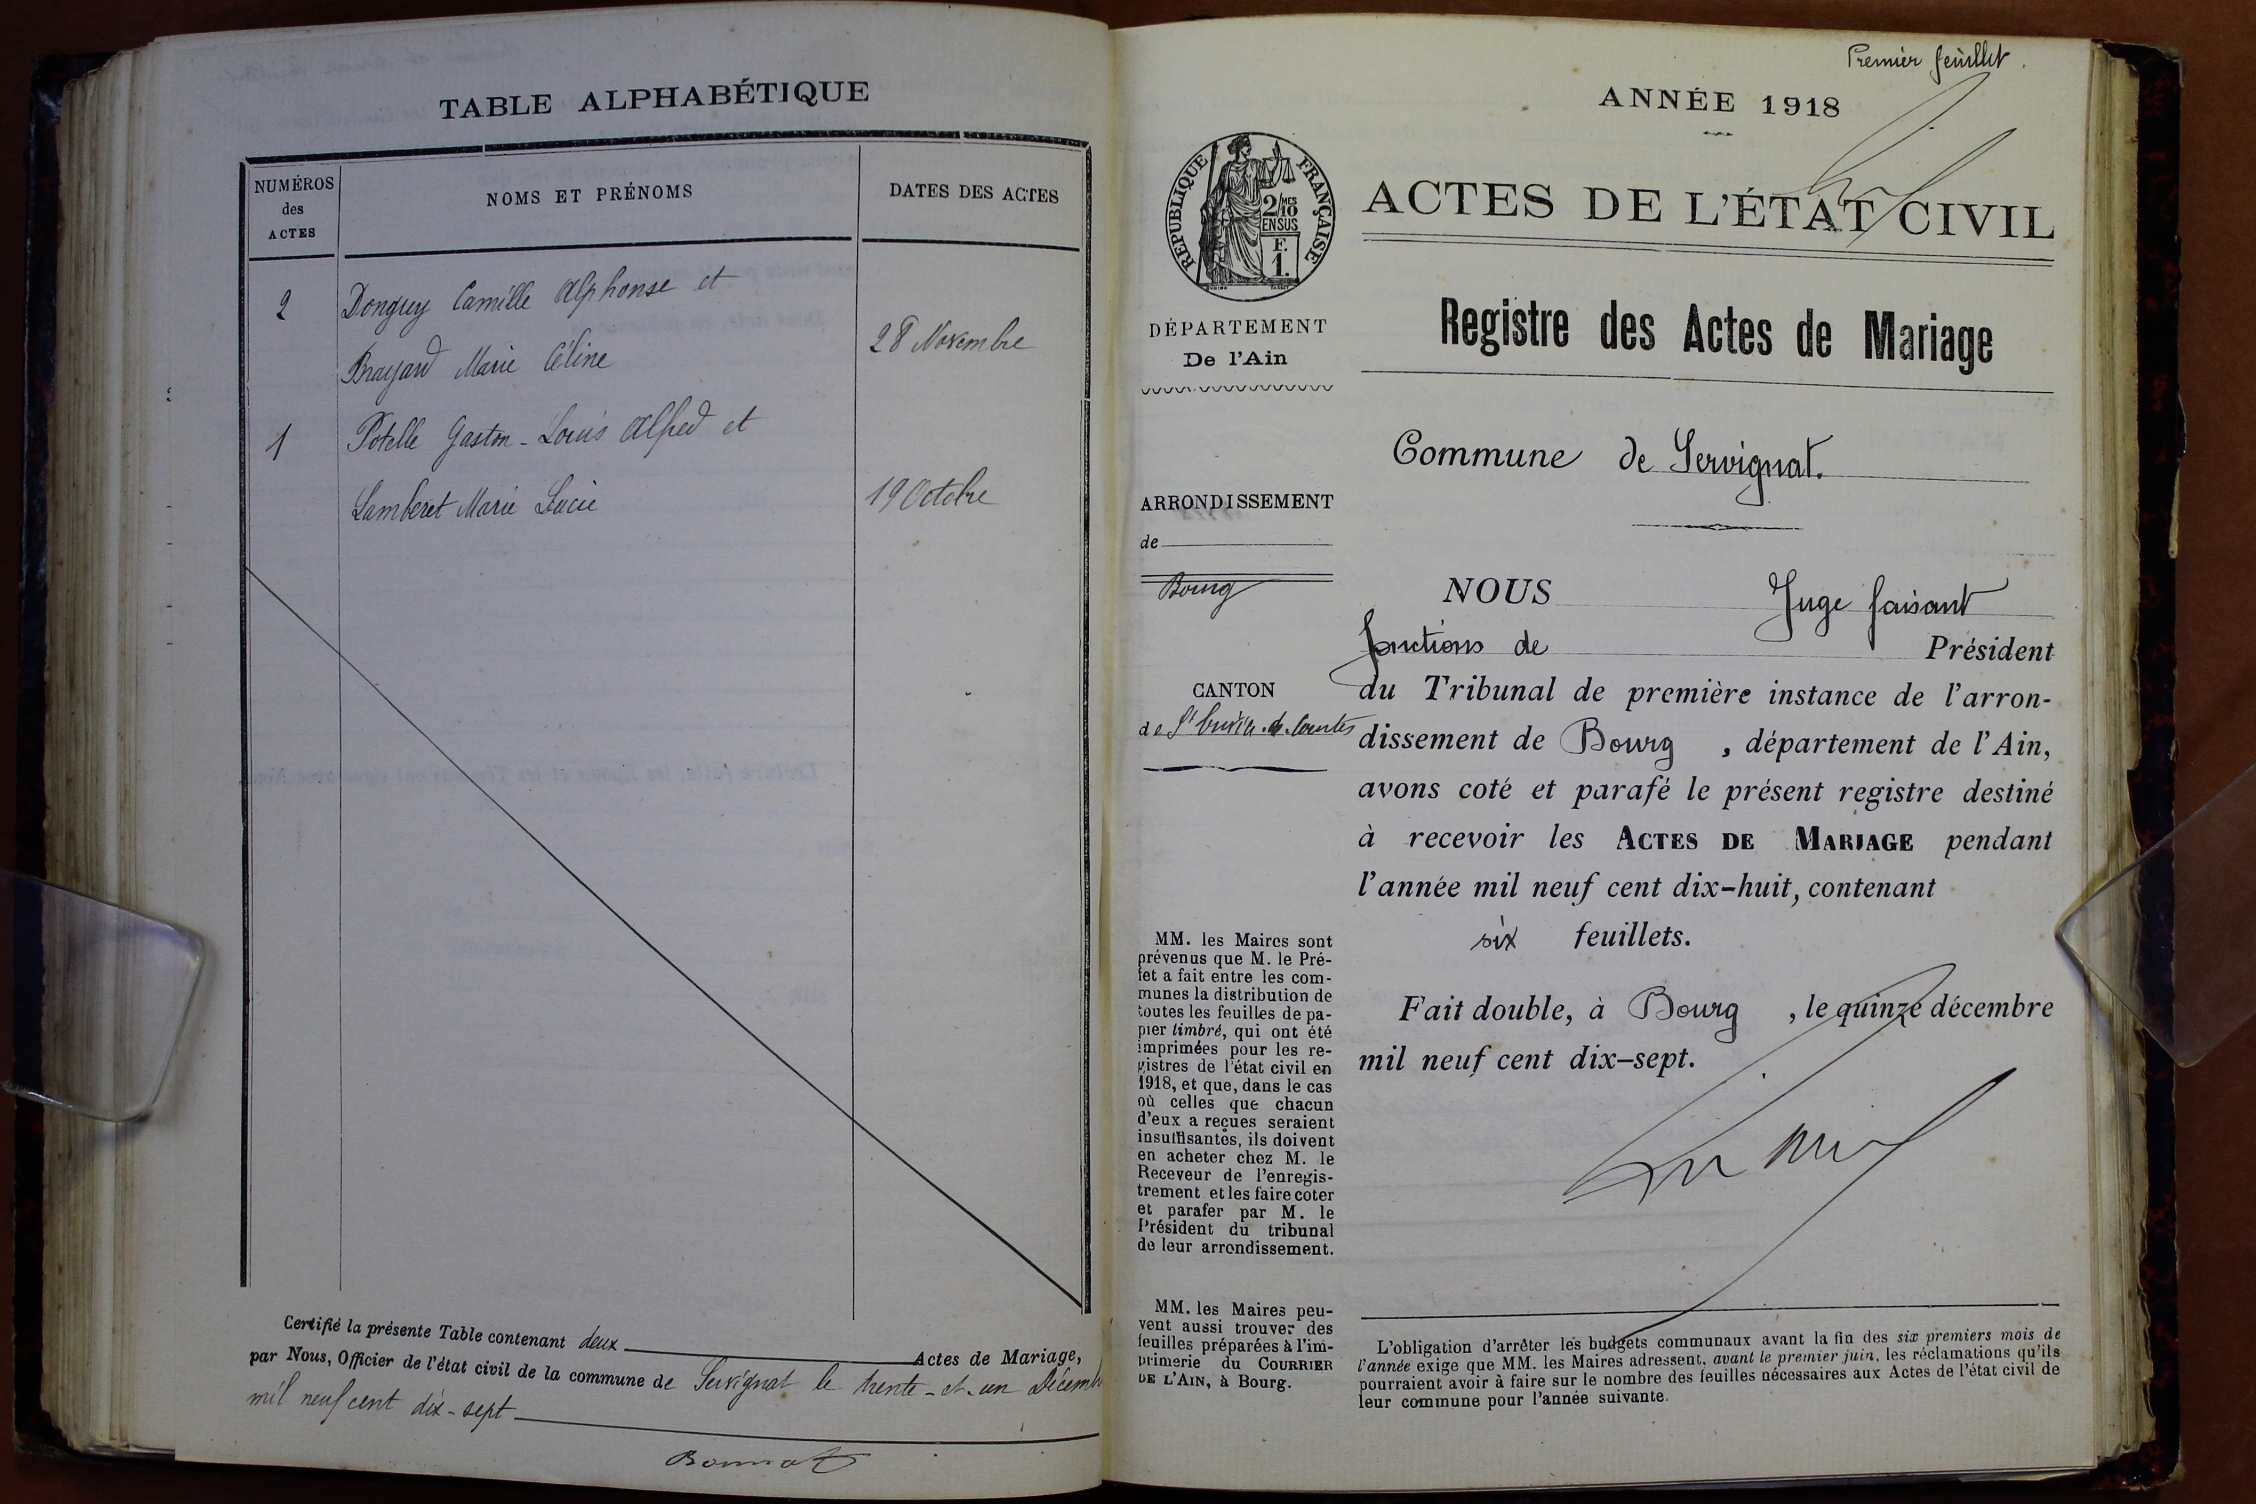 TABLE ALPHABÉTIQUE
NUMÉROS
des
ACTES
NOMS ET PRÉNOMS
DATES DES ACTES
2
Donguy Camille Alphonse et
Brayard Marie Céline
28 Novembre
1
Potelle Gaston-Louis Alfred et
Lamberet Marie Lucie
19 Octobre
Certifié la présente Table contenant deux Actes de Mariage,
par Nous, Officier de l'état civil de la commune de Servignat le trente-et-un Décemb
mil neuf cent dix-sept
Bonnat
Premier feuillet.
ANNÉE 1918
RÉPUBLIQUE FRANÇAISE
2/10 MES
EN SUS
F.
1.
DÉPARTEMENT
De l'Ain
ARRONDISSEMENT
de
Bourg
CANTON
de St Trivier-de-Courtes
MM. les Maires sont
prévenus que M. le Pré-
fet a fait entre les com-
munes la distribution de
toutes les feuilles de pa-
pier timbré, qui ont été
imprimées pour les re-
gistres de l'état civil en
1918, et que, dans le cas
où celles que chacun
d'eux a reçues seraient
insuffisantes, ils doivent
en acheter chez M. le
Receveur de l'enregis-
trement et les faire coter
et parafer par M. le
Président du tribunal
de leur arrondissement.
MM. les Maires peu-
vent aussi trouver des
feuilles préparées à l'im-
primerie du COURRIER
DE L'AIN, à Bourg.
ACTES DE L'ÉTAT CIVIL
Registre des Actes de Mariage
Commune de Servignat.
NOUS Juge faisant
fonctions de Président
du Tribunal de première instance de l'arron-
dissement de Bourg, département de l'Ain,
avons coté et parafé le présent registre destiné
à recevoir les ACTES DE MARIAGE pendant
l'année mil neuf cent dix-huit, contenant
six feuillets.
Fait double, à Bourg, le quinze décembre
mil neuf cent dix-sept.
L'obligation d'arrêter les budgets communaux avant la fin des six premiers mois de
l'année exige que MM. les Maires adressent, avant le premier juin, les réclamations qu'ils
pourraient avoir à faire sur le nombre des feuilles nécessaires aux Actes de l'état civil de
leur commune pour l'année suivante.